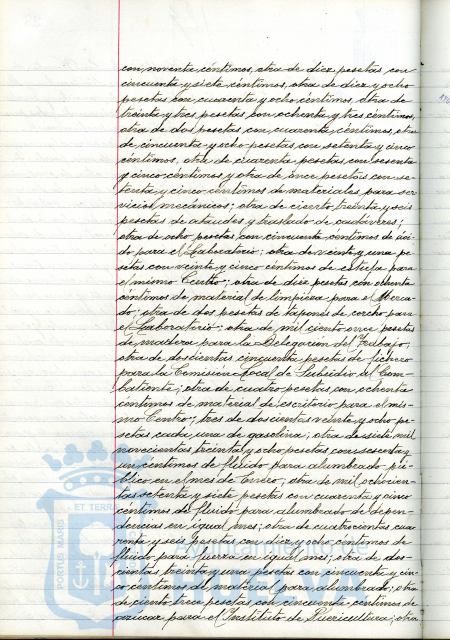 con noventa céntimos, otra de diez pesetas con
cincuenta y siete céntimos, otra de diez y ocho
pesetas con cuarenta y ocho céntimos, otra de
treinta y tres pesetas con ochenta y tres céntimos,
otra de dos pesetas con cuarenta céntimos, otra
de cincuenta y ocho pesetas con setenta y cinco
céntimos, otra de cuarenta pesetas con sesenta
y cinco céntimos y otra de once pesetas con se-
tenta y cinco céntimos de materiales para ser-
vicios mecánicos; otra de ciento treinta y seis
pesetas de ataudes y traslado de cadáveres;
otra de ocho pesetas con cincuenta céntimos de áci-
do para el Laboratorio; otra de veinte y una pe-
setas con veinte y cinco céntimos de estufa para
el mismo Centro; otra de diez pesetas con ochenta
céntimos de material de limpieza para el Merca-
do; otra de dos pesetas de tapones de corcho para
el Laboratorio; otra de mil ciento once pesetas
de madera para la Delegación del Trabajo;
otra de doscientas cincuenta pesetas de fichero
para la Comisión Local de Subsidio al Com-
batiente; otra de cuatro pesetas con ochenta
céntimos de material de escritorio para el mis-
mo Centro; tres de doscientas veinte y ocho pe-
setas cada una de gasolina; otra de siete mil
novecientas treinta y ocho pesetas con sesenta y
un céntimos de fluido para alumbrado pú-
blico en el mes de Enero; otra de mil ochocien-
tas setenta y siete pesetas con cuarenta y cinco
céntimos de fluido para alumbrado de depen-
dencias en igual mes; otra de cuatrocientas cua-
renta y seis pesetas con diez y ocho céntimos de
fluido para fuerza en igual mes; otra de dos-
cientas treinta y una pesetas con cincuenta y cin-
co céntimos de material para alumbrado; otra
de ciento trece pesetas con cincuenta céntimos de
azúcar para el Instituto de Puericultura; otra
PORTUS MARIS ET TERRAE